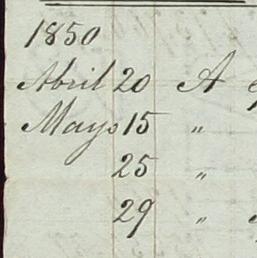 1850
April 20 A
Mays 15 "
25 "
29 "